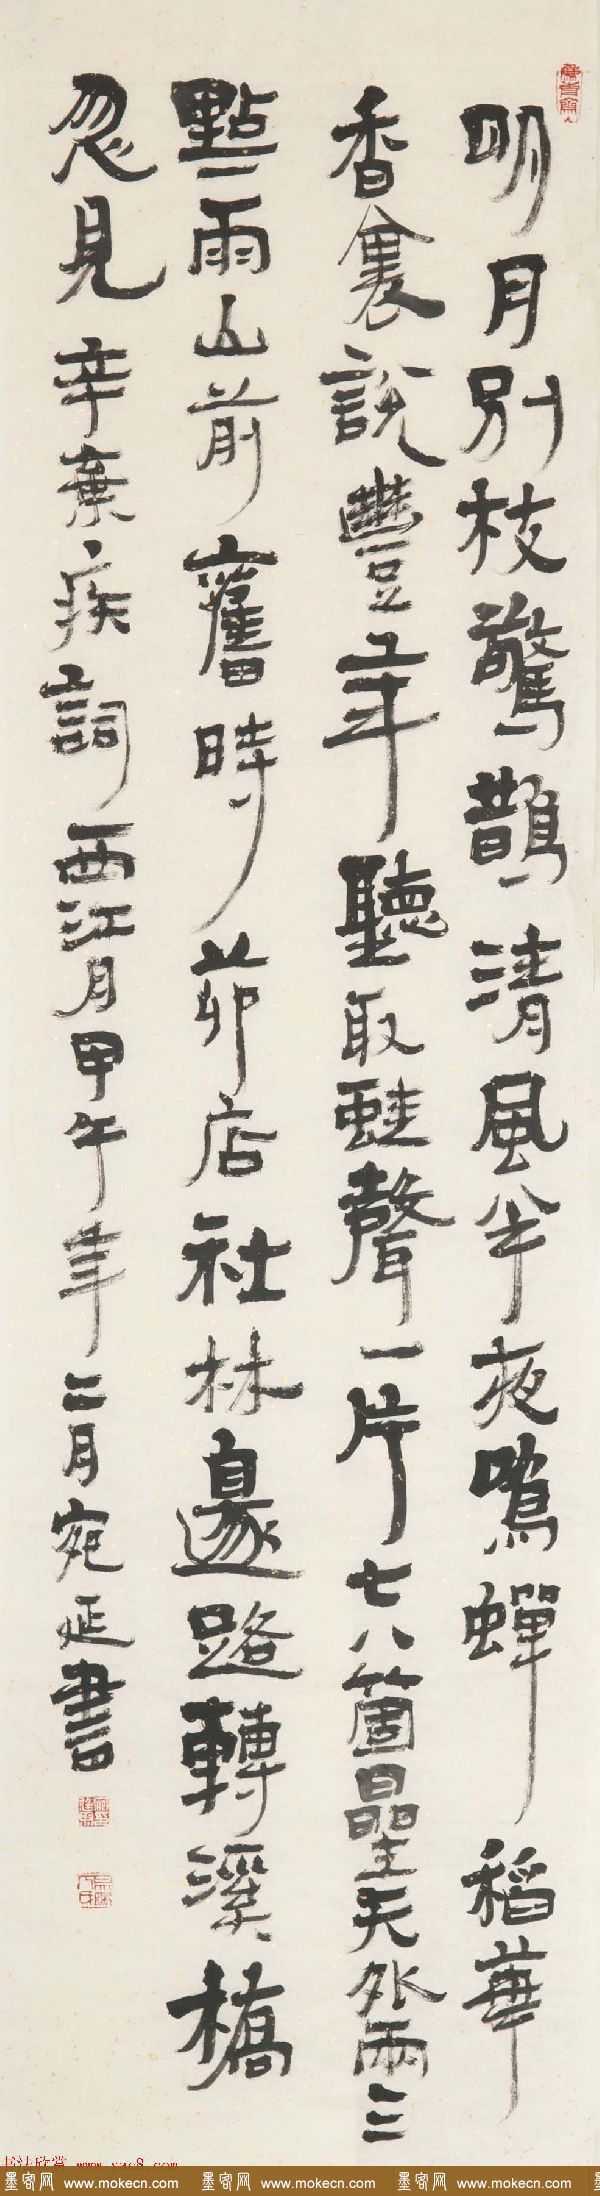 明月別枝驚鵲清風半夜鳴蟬稻華
香裏說豐年聽取蛙聲一片七八箇星天外兩三
點雨山前舊時茆店社林邊路轉溪橋
忽見辛棄疾詞西江月甲午年二月宛延書
书法欣赏 www.yac8.com
墨客网 www.mokecn.com 墨客网 www.mokecn.com 墨客网 www.mokecn.com